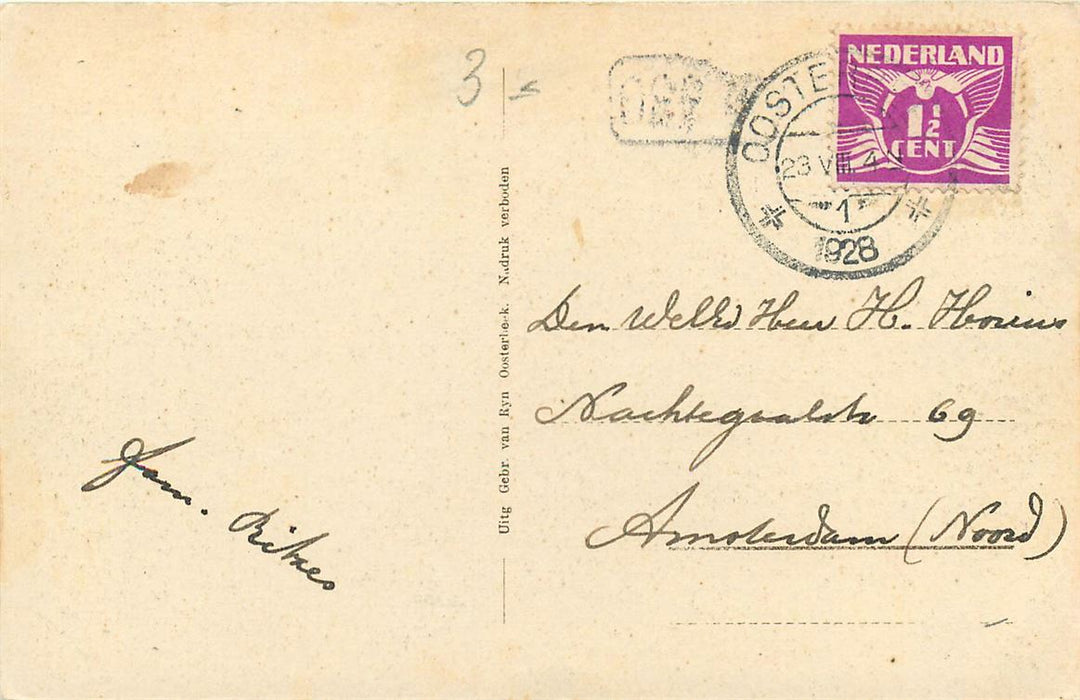 3 -
NEDERLAND
1½
CENT
OOSTE
23 VIII. 4
1
1928
Den WelEd Heer H.
Nachtegaalstr 69
Amsterdam (Noord)
Fam.
Uitg Gebr. van Ryn Oosterbeek. Nadruk verboden